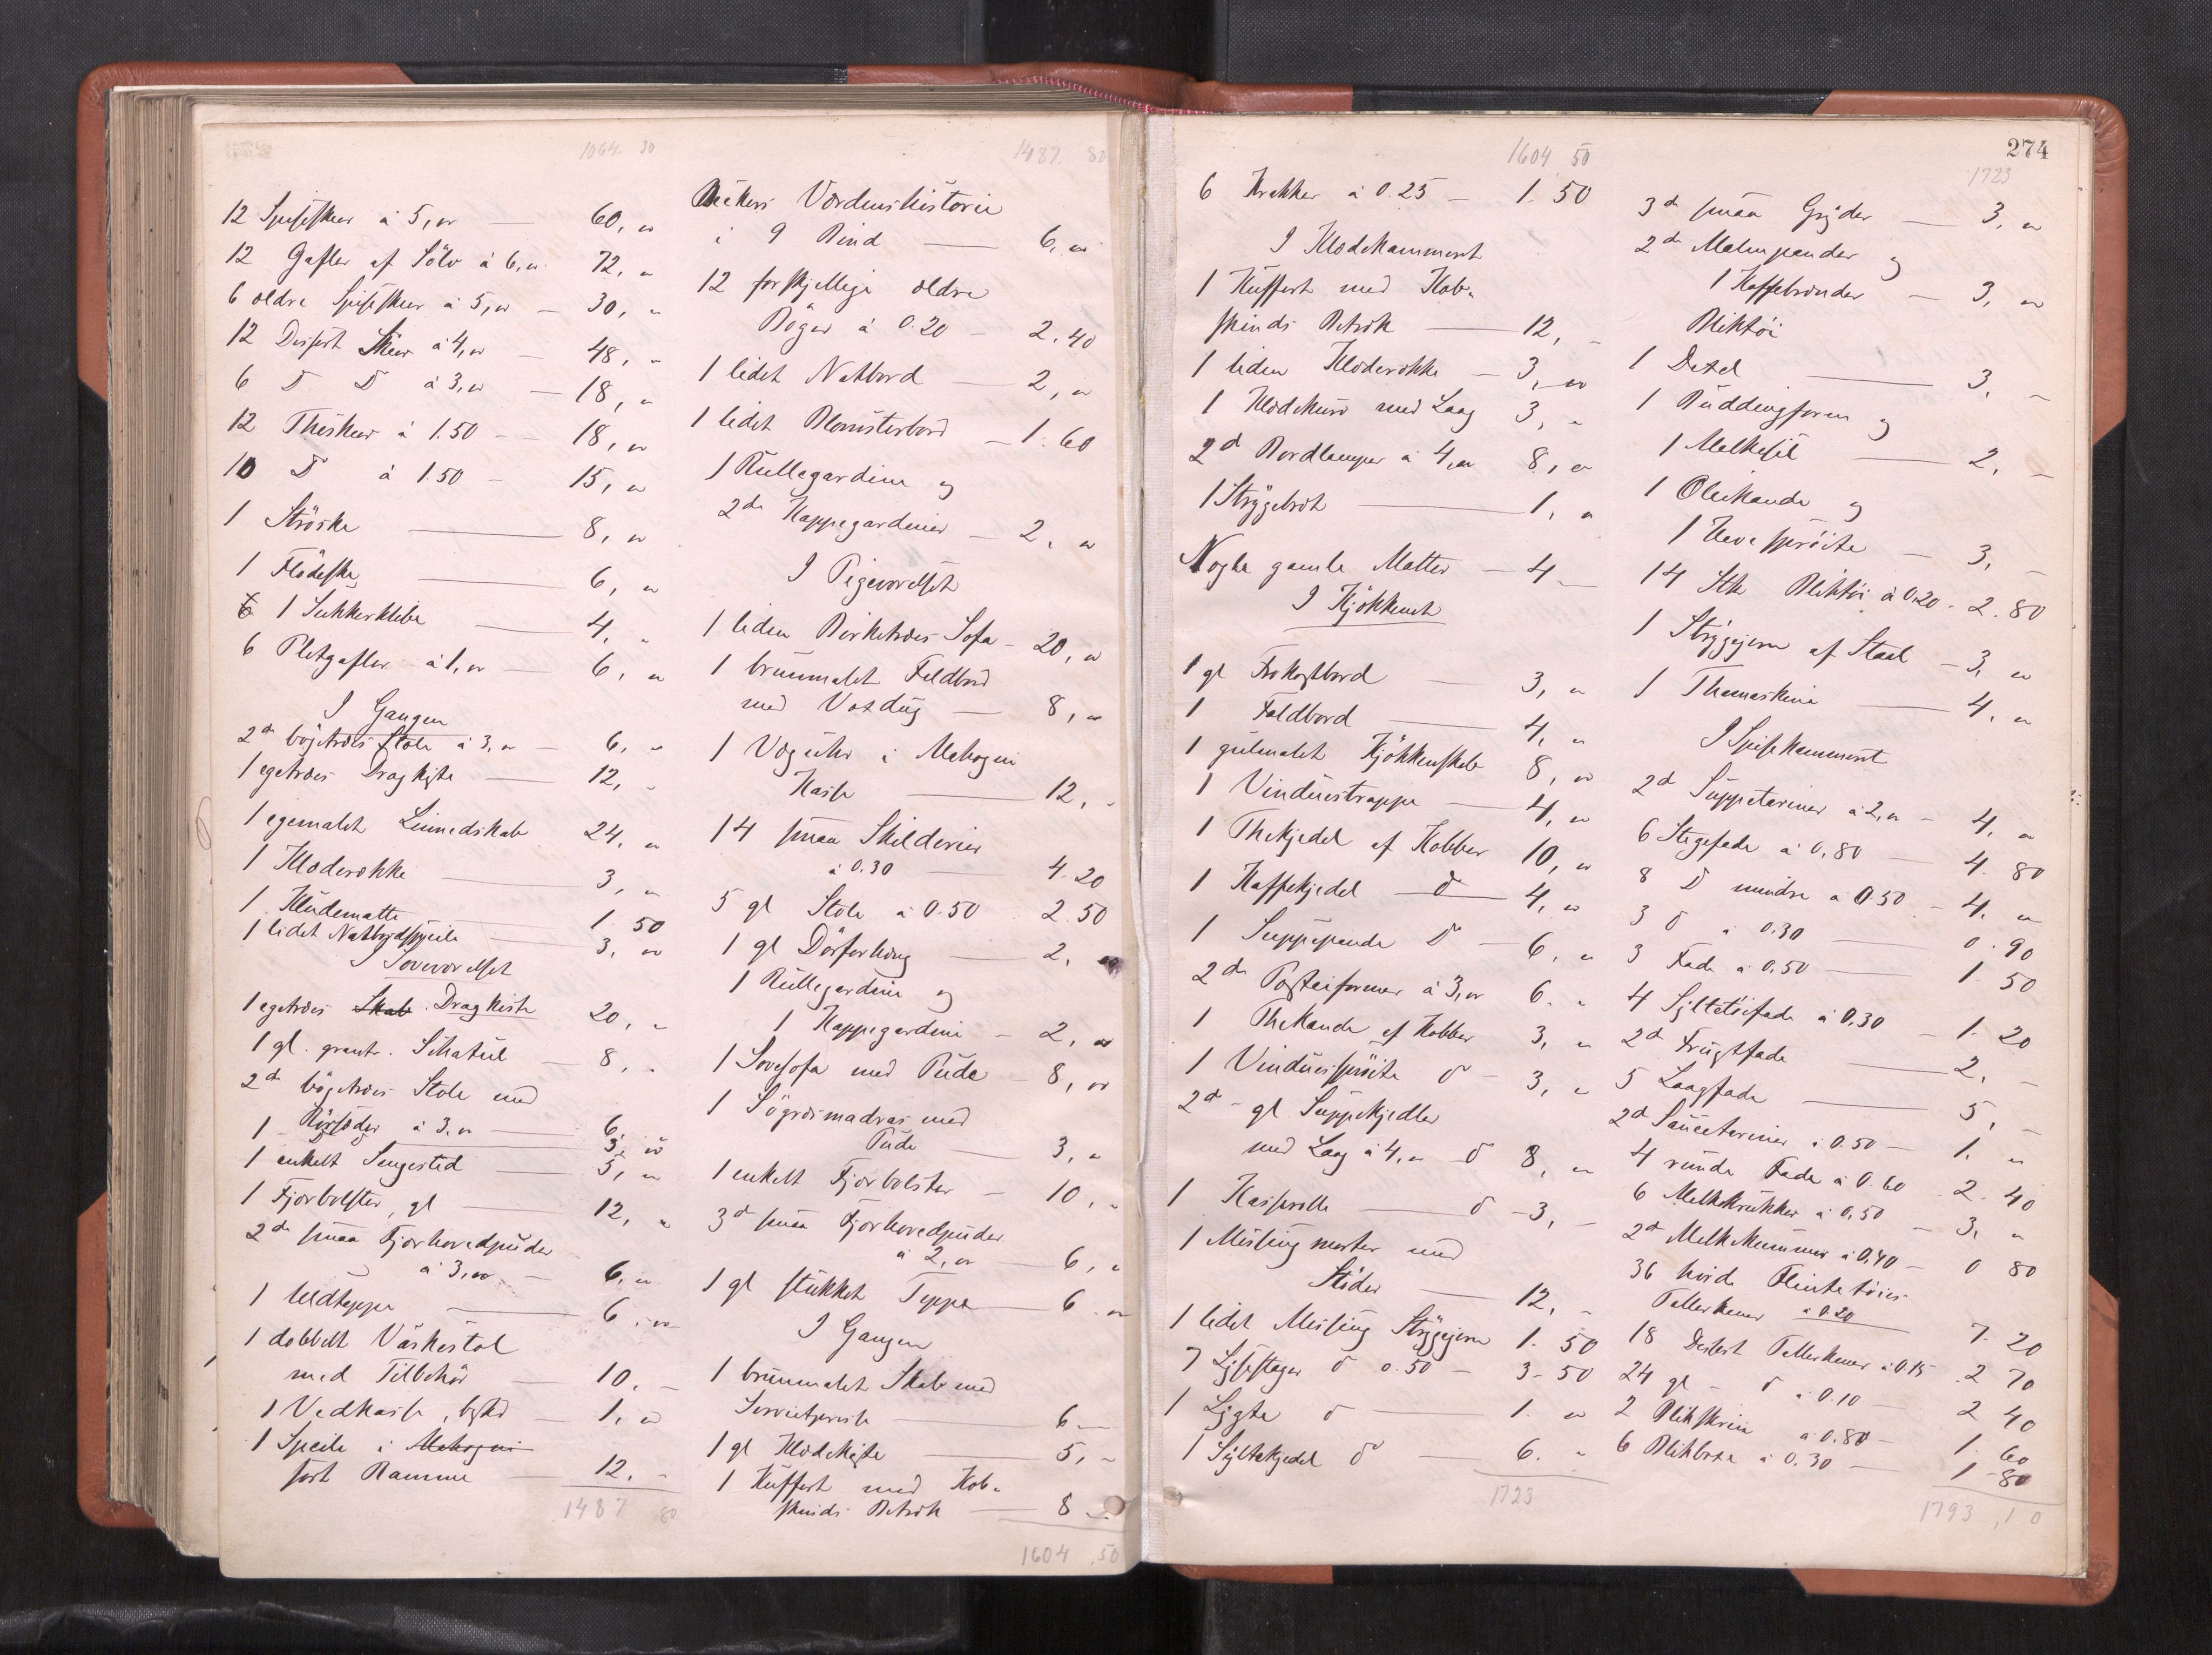 1064 30
12 Spiseskeer à 5,00 — 60, 00
12 Gafler af Sölv à 6,00 72, 00
6 ældre Spiseskeer à 5,00 — 30, "
12 Desert Skeer à 4,00 — 48, "
6 D D à 3,00 — 18, "
12 Theskeer à 1.50 — 18, 00
10 D à 1.50 — 15, 00
1 Ströske — 8, 00
1 Flödeske — 6, "
1 Sukkerklibe — 4, "
6 Pletgafler à 1,00 — 6, 00
I Gangen
2de bögetræes Stole à 3,00 — 6, "
1 egetræes Dragkiste — 12, "
1 egemalet Linnedskab 24, "
1 Klæderække — 3, "
1 Kludematte 1. 50
1 lidet Natbordspeile — 3, 00
I Soveværelset
1 egetræes Skab Dragkiste 20, "
1 gl. grantr. Schatul — 8, "
2de bögetræes Stole med
1 Rörsæder à 3.00 — 6,
3, 00
1 enkelt Sengested — 5, "
1 Fjærbolster, gl — 12, "
2de smaa Fjærhovedpuder
à 3,00 — 6, "
1 Uldteppe — 6, 00
1 dobbelt Vaskestol
med Tilbehör — 10, —
1 Vedkasse, — 1, 00
1 Speile i Mahogni
sort Ramme — 12. —
1487 80
1487. 80
Beckers Verdenshistorie
i 9 Bind — 6, 00
12 forskjellige ældre
Böger à 0.20 — 2.40
1 lidet Natbord — 2, 00
1 lidet Blomsterbord — 1.60
1 Rullegardine og
2de Kappegardiner — 2, 00
I Pigeværelset
1 liden Birketræes Sofa — 20, 00
1 brunmalet Foldbord
med Voxdug — 8, 00
1 Væguhr i Mahogni
Kasse — 12, "
14 smaa Skilderier
à 0.30 — 4.20
5 gl Stole à 0.50 2.50
1 gl Dörforhæng — 2, 00
1 Rullegardine og
1 Kappegardine — 2, 00
1 Sovesofa med Pude — 8, 00
1 Sögræsmadras med
Pude — 3, "
1 enkelt Fjærbolster — 10, "
3de smaa Fjærhovedpuder
à 2,00 — 6, "
1 gl stukket Teppe — 6. 00
I Gangen
1 brunmalet Skab med
Servietpresse — 6 —
1 gl Klædekiste — 5, "
1 Kuffert med Kob-
skinds Betræk — 8 —
1604 .50
274
1604 50
6 Krakker à 0.25 — 1. 50
I Klædekammeret
1 Kuffert med Kob-
skinds Betræk — 12, —
1 liden Klæderække — 3, 00
1 Klædekurv med Laag 3, "
2de Bordlamper à 4,00 8, 00
1 Strygebræt — 1, "
Nogle gamle Matter — 4 —
I Kjökkenet
1 gl Frokostbord — 3, "
1 Foldbord — 4, "
1 gulmalet Kjökkenskab 8, 00
1 Vinduestrappe — 4, 00
1 Thekjedel af Kobber 10, 00
1 Kaffekjedel — D 4, 00
1 Suppepande D — 6, "
2de Posteiformer à 3,00 6. "
1 Thekande af Kobber 3, "
1 Vinduesspröite D — 3, "
2de gl Suppekjedler
med Laag à 4,00 D 8, "
1 Kasserolle — D — 3, —
1 Messing morter med
Stöder — 12, —
1 lidet Messing Strygejern 1. 50
7 Lysestager D 0.50 — 3. 50
1 Lygte D — 1. 00
1 Syltekjedel D — 6. "
1723
1723
3de smaa Gryder — 3, "
2de Malmpander og
1 Kaffebrænder — 3, 00
Bliktöi
1 Dexel — 3, —
1 Puddingform og
1 Melkesil — 2, —
1 Oliekande og
1 Havespröite — 3, —
14 Stk Bliktöi à 0.20 . 2.80
1 Strygejern af Staal — 3, 00
1 Themaskine — 4, "
I Spisekammeret
2de Suppeteriner à 2,00 — 4, "
6 Stegefade à 0,80 — 4. 80
8 D mindre à 0.50 — 4, "
3 D à 0.30 — 0. 90
3 Fade à 0.50 — 1 50
4 Syltetöifade à 0,30 — 1. 20
2de Frugtfade — 2, —
5 Laagfade — 5, —
2de Sauceteriner à 0.50 — 1. "
4 runde Fade à 0.60 . 2. 40
6 Melkekrukker à 0,50 — 3, "
2de Melkekummer à 0,40 — 0 80
36 hvide Flintetöies
Tallerkener à 0.20 7. 20
18 Desert Tallerkener à 0.15 2 70
24 gl — D à 0.10 — 2 40
2 Blikskrin à 0.80 — 1. 60
6 Blikboxe à 0.30 — 1 80
1793 , 10